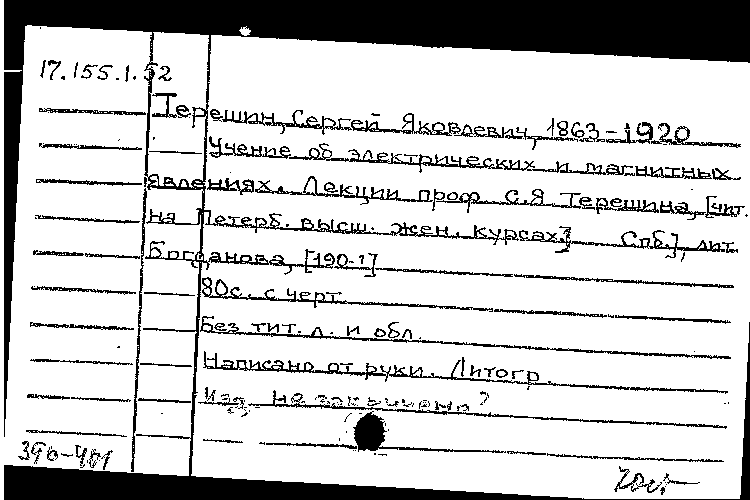 17.155.1.52
Терешин, Сергей Яковлевич, 1863-1920
Учение об электрических и магнитных
явлениях. Лекции проф. С.Я Терешина, [чит.
на Петерб. высш. жен. курсах.] Спб.], лит.
Богданова, [190-?]
80с. с черт.
Без тит. л. и обл.
Написано от руки. Литогр.
Изд. не закончено?
396-401